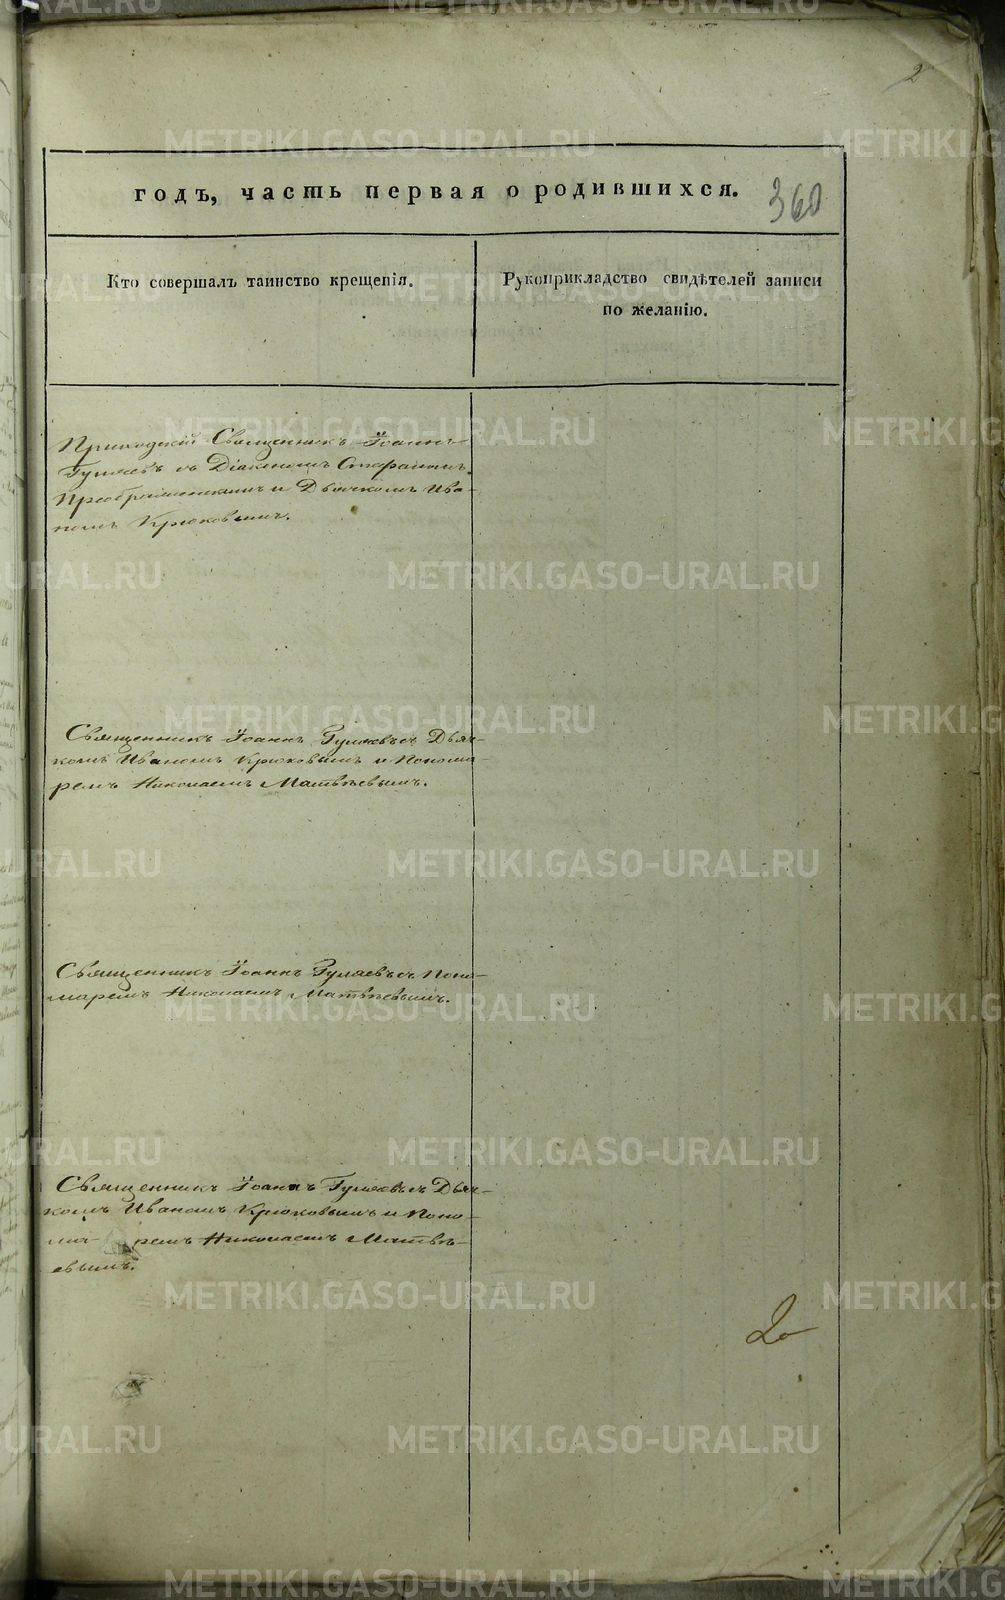 2
годъ, часть первая о родившихся.
360
Кто совершалъ таинство крещенія.
Рукоприкладство свидѣтелей записи
по желанію.
Приходскій Священникъ Іоаннъ
Гуляевъ съ Діакономъ Стефаномъ
Преображенскимъ и Дьячкомъ Ива-
номъ Крюковымъ.
Священникъ Іоаннъ Гуляевъ съ Дьяч-
комъ Иваномъ Крюковымъ и Понома-
ремъ Николаемъ Матвѣевымъ.
Священникъ Іоаннъ Гуляевъ съ Поно-
маремъ Николаемъ Матвѣевымъ.
Священникъ Іоаннъ Гуляевъ съ Дьяч-
комъ Иваномъ Крюковымъ и Поно-
ма- ремъ Николаемъ Матвѣ-
евымъ.
2
METRIKI.GASO-URAL.RU